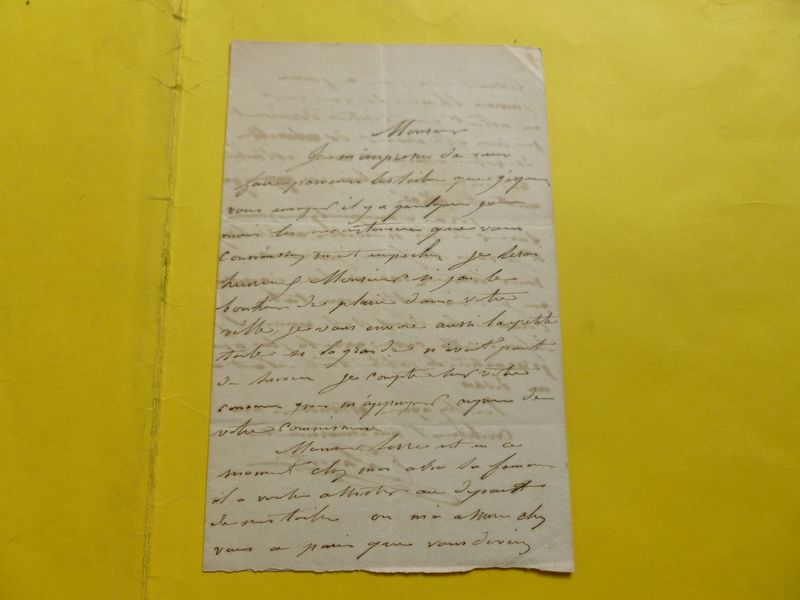 Monsieur
Je m'empresse de vous
faire parvenir les toiles que j'
vous envoyer il y a quelques jours
mais les circonstances que vous
connaissez m'ont empeché je serai
heureux Monsieur si j'ai le
bonheur de plaire dans votre
ville, je vous envoie aussi la petite
toile si la grande n'avait point
de succes je compte sur votre
concour pour m'appuyer aupres de
votre commission
Monsieur est en ce
moment chez moi avec sa femme
il a voulu assister au depart
de mes toiles on m'a assuré chez
vous a paris que vous deviez